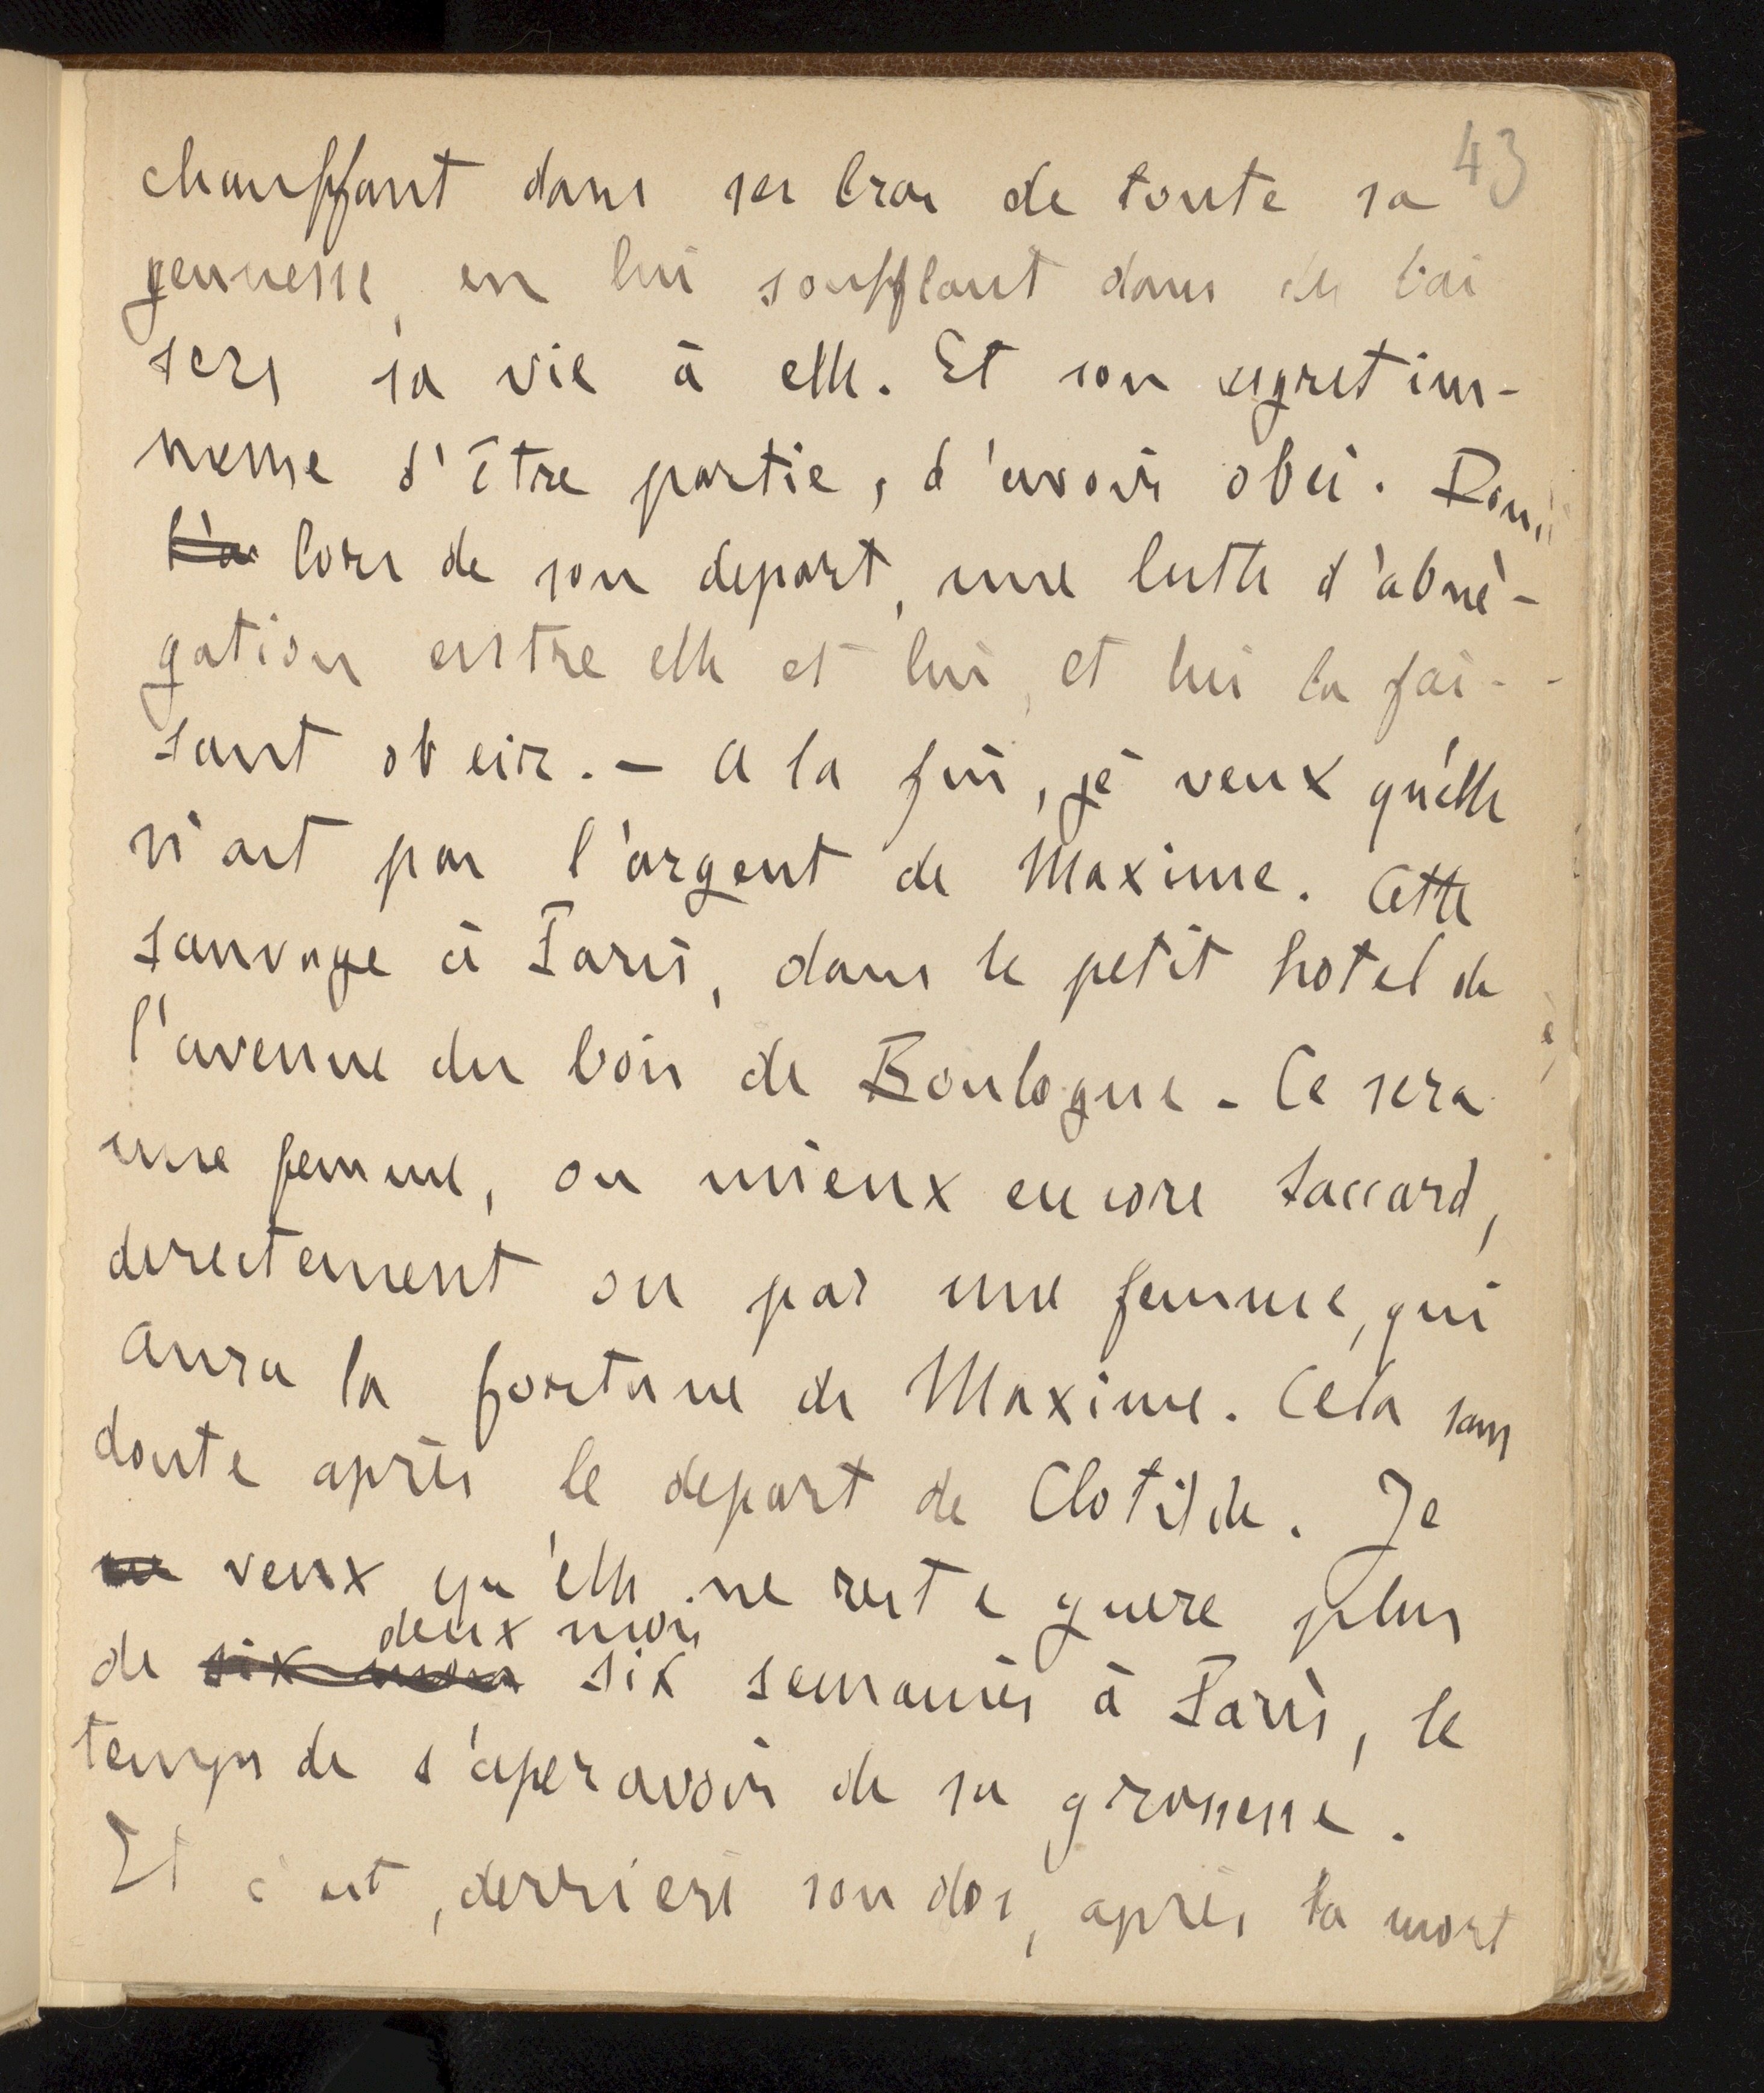 43
chauffant dans ses bras de toute sa
jeunesse, en lui soufflant dans des bai
sers sa vie à elle. Et son regret im-
mense d'être partie, d'avoir obéi. Donc
lors de son depart, une lutte d'abné-
gation entre elle et lui, et lui la fai-
sant obeir. - A la fin, je veux qu'elle
n'ait pas l'argent de Maxime. Cette
sauvage à Paris, dans le petit hotel de
l'avenue du bois de Boulogne - Ce sera
une femme, ou mieux encore Saccard,
directement ou par une femme, qui
aura la fortune de Maxime. Cela sans
doute après le depart de Clotilde. Je
veux qu'elle ne reste guere plus
deux mois
de six mois six semaines à Paris, le
temps de s'apercevoir de sa grossesse.
Et c'est, derriere son dos, après la mort